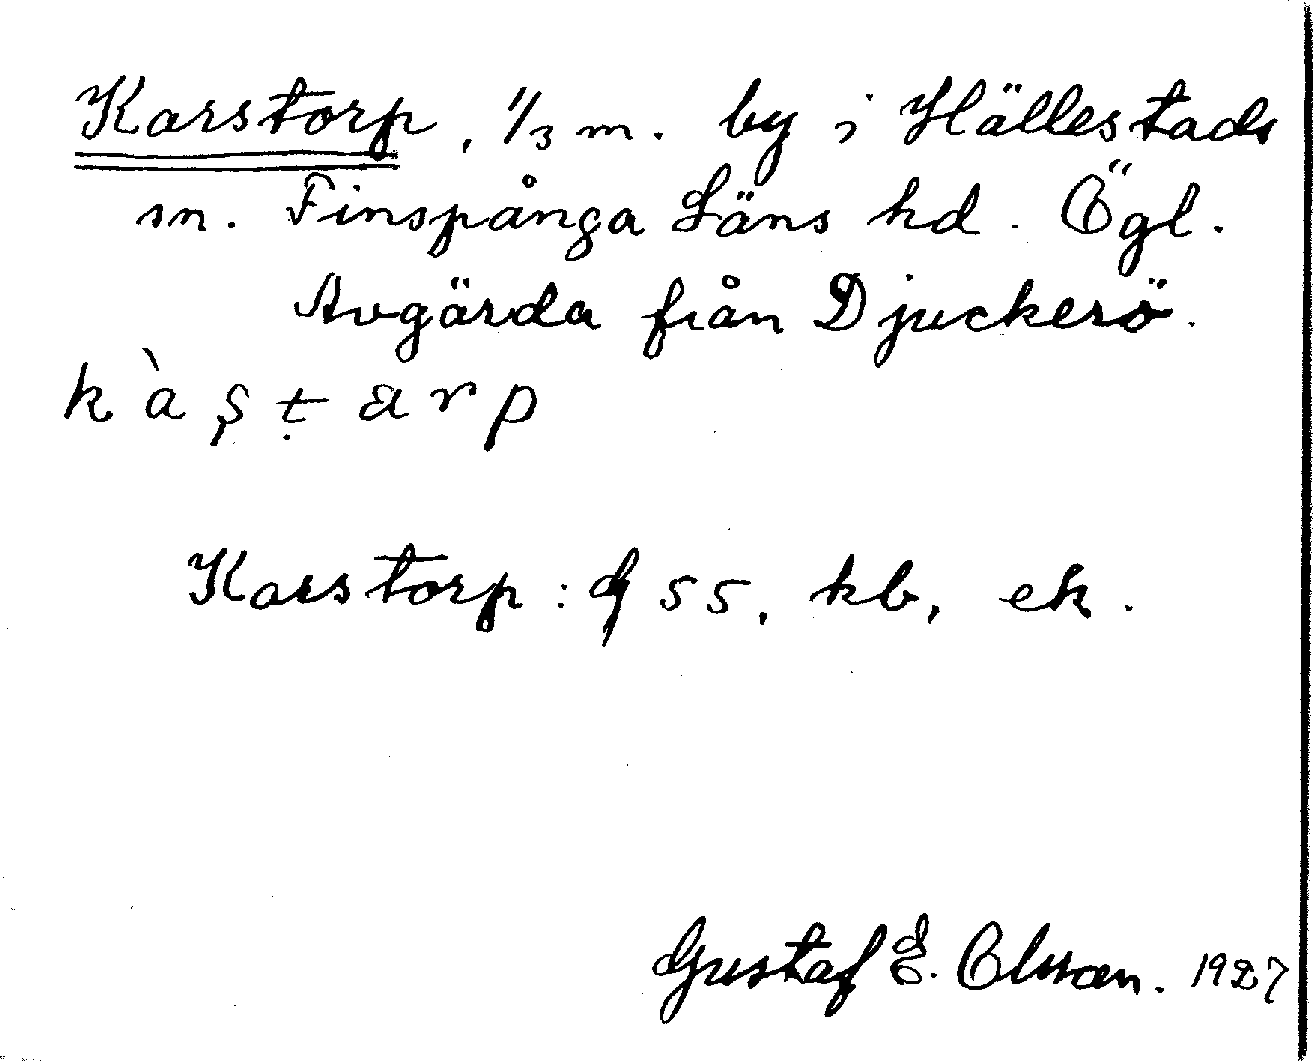 Karstorp, 1/3 m. by i Hällestads
sn. Finspånga Läns hd. Ögl.
Avgärda från Djuckerö.
kàṣṭarp
Karstorp: J 55, kb, ek.
Gustaf E. Olsson. 1927